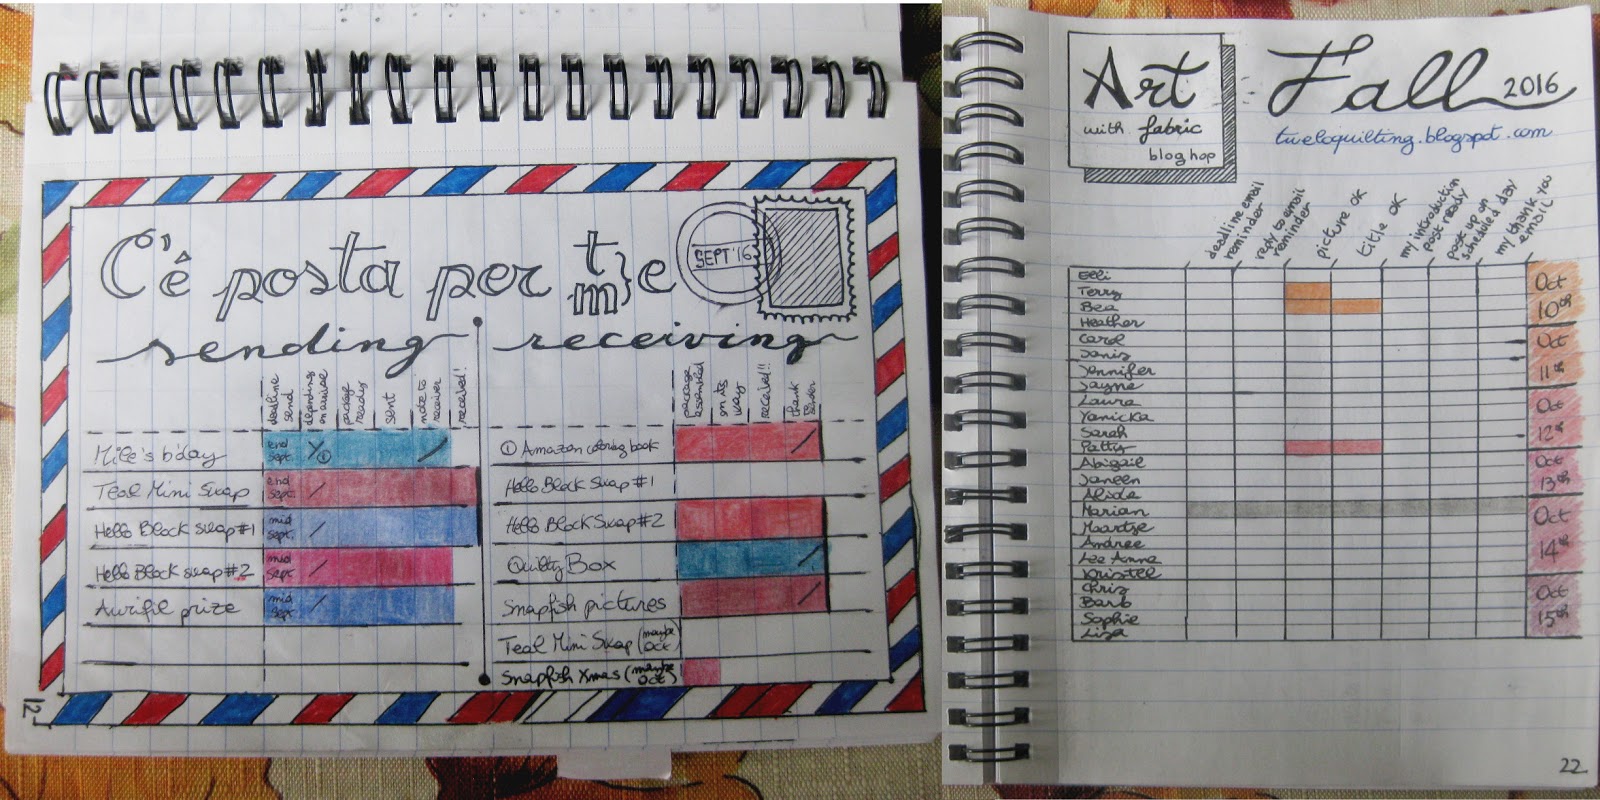 C'è posta per
t
m}e
SEPT '16
sending
receiving
deadline send
depending on arrival
package ready
sent
note to receiver
received!
package assembled
on its way
received!!
thank sender
Mile's b'day
end sept.
①
Teal Mini Swap
end sept.
Hello Block swap #1
mid sept.
Hello Block swap #2
mid sept.
Aurifil prize
mid sept.
① Amazon coloring book
Hello Block Swap #1
Hello Block Swap #2
Quilty Box
Snapfish pictures
Teal Mini Swap (maybe oct)
Snapfish Xmas (maybe oct)
12
Art
with fabric
blog hop
Fall 2016
tweloquilting.blogspot.com
deadline email reminder
reply to email reminder
picture OK
title OK
my introduction post ready
post up on scheduled day
my thank you email
Elli
Terry
Bea
Heather
Carol
Janis
Jennifer
Jayne
Laura
Yanicka
Sarah
Patty
Abigail
Janeen
Alida
Marian
Maartje
Andree
Lee Anna
Kristel
Chris
Barb
Sophie
Lisa
Oct 10th
Oct 11th
Oct 12th
Oct 13th
Oct 14th
Oct 15th
22